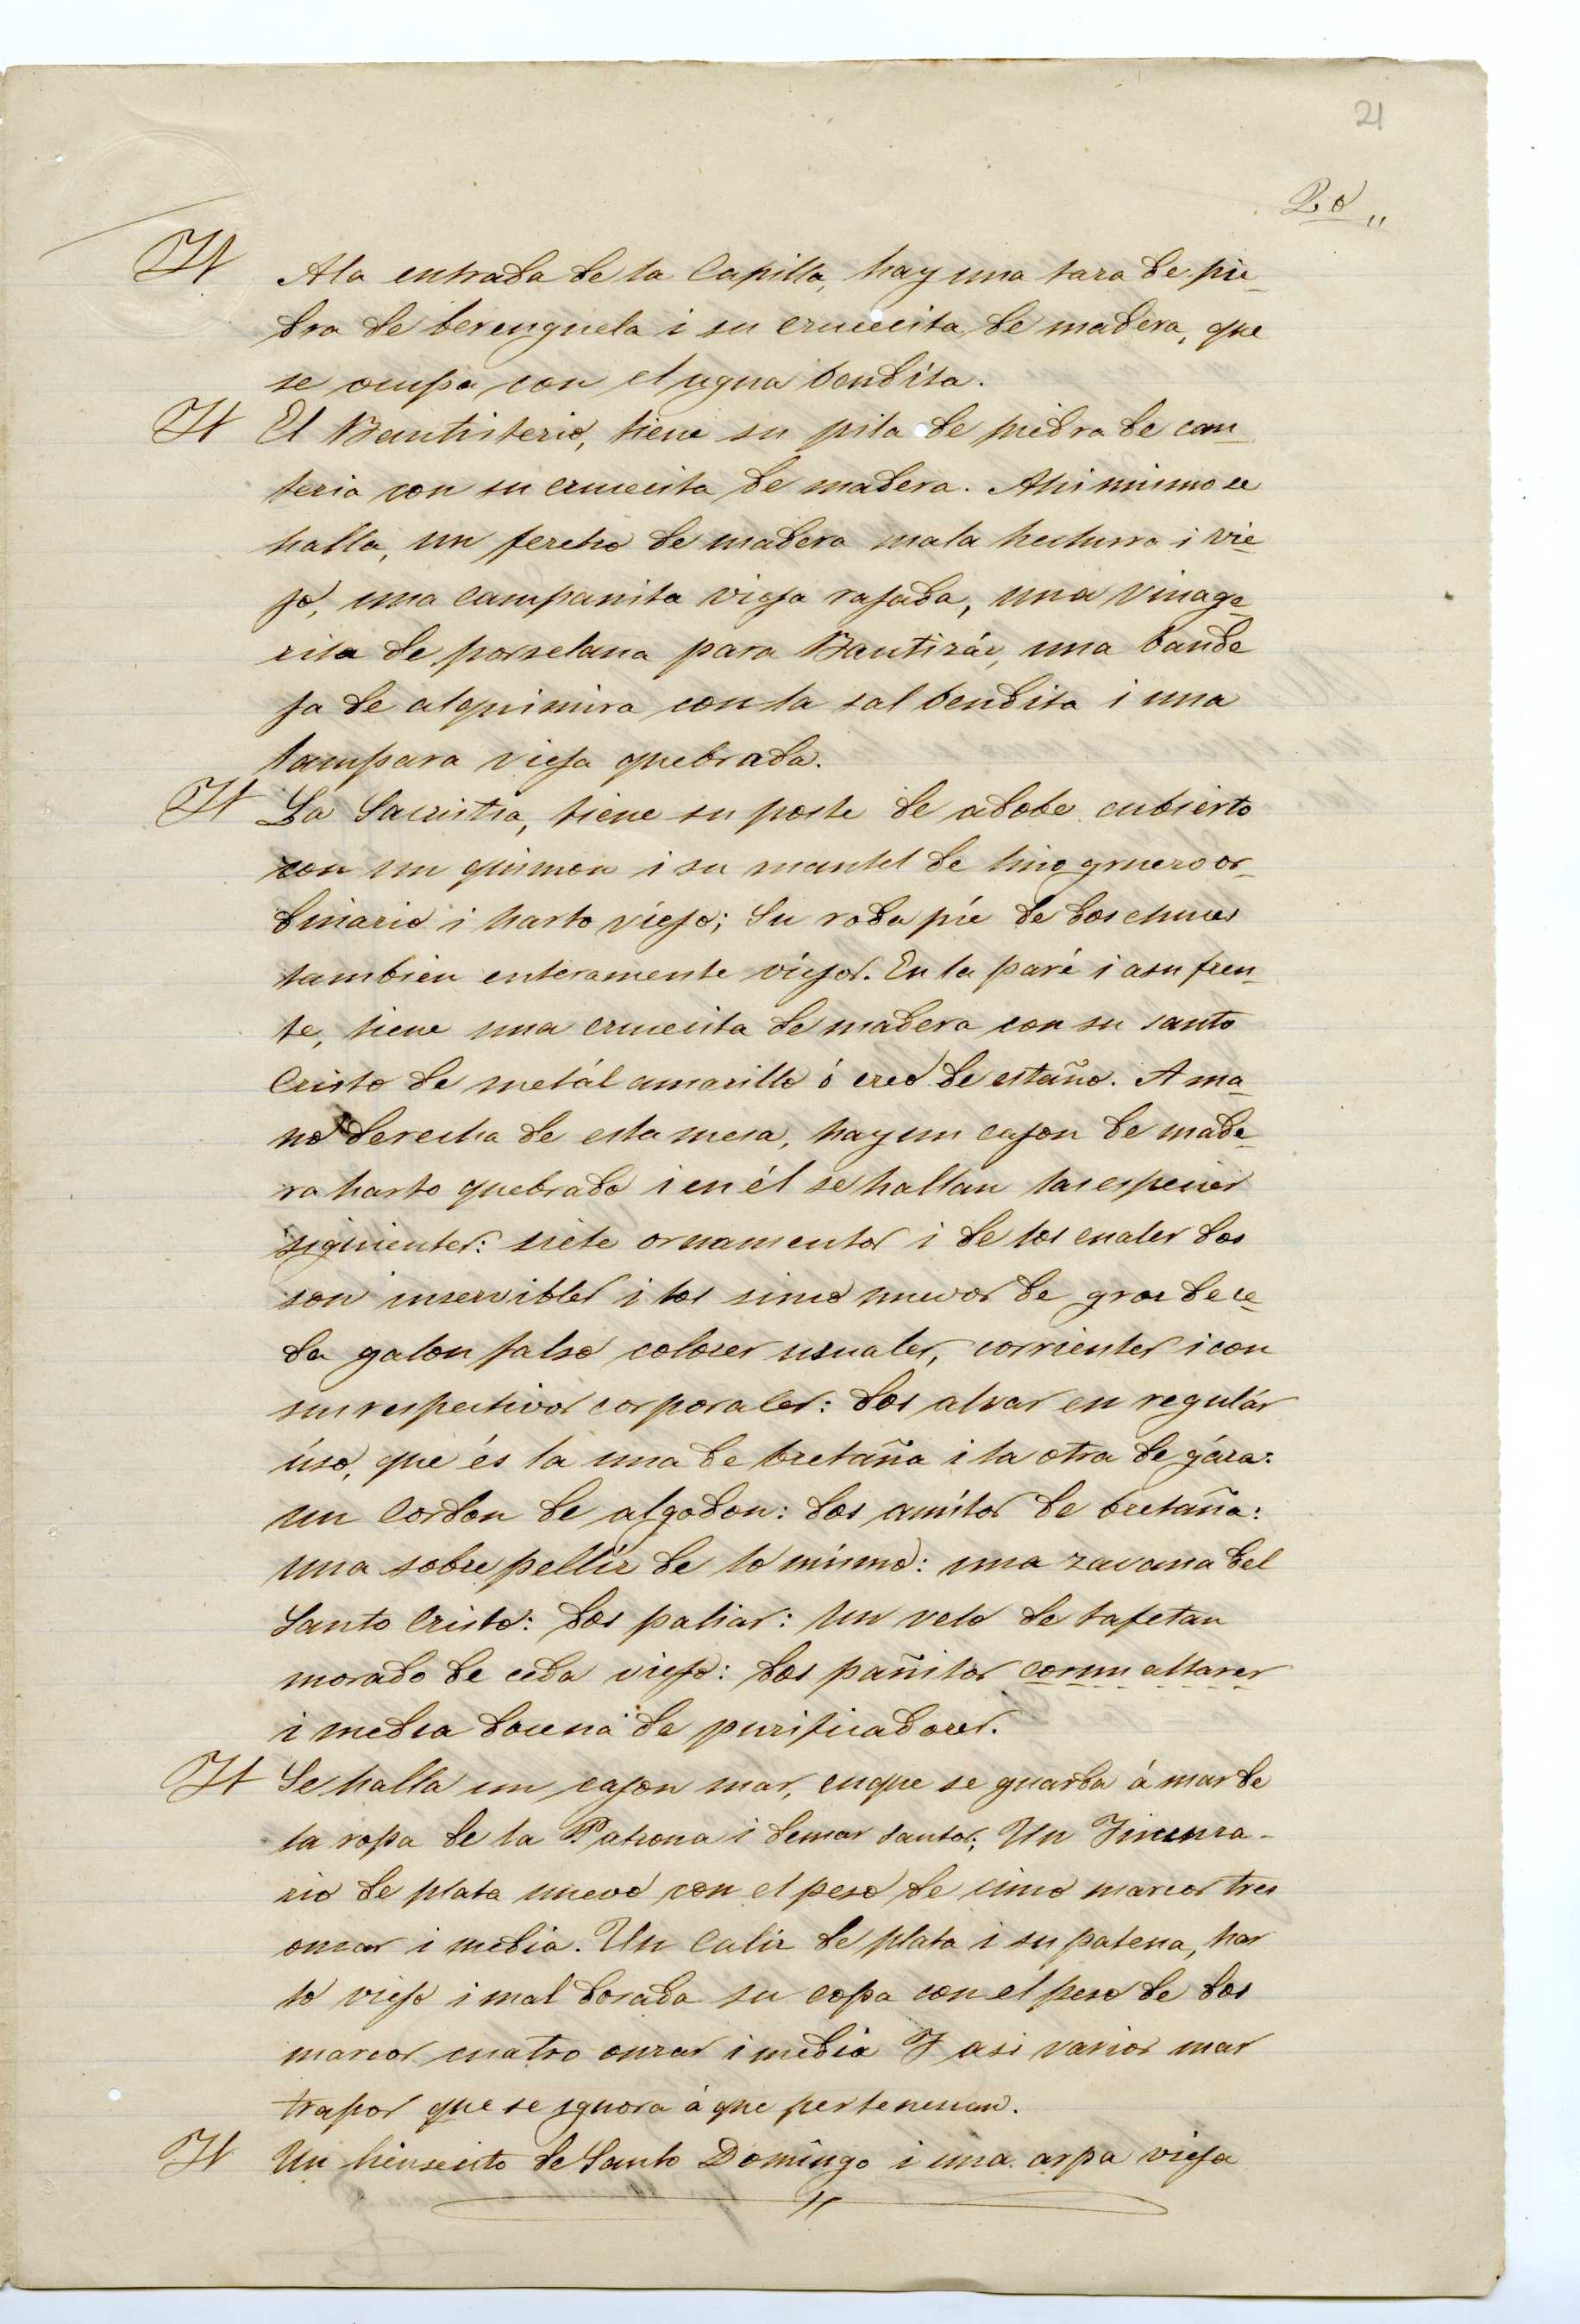 21
2.o „
It A la entrada de la Capilla, hay una taza de pie-
dra de berenguela i su crucecita de madera, que
se ocupa con el agua bendita.
It El Bautisterio, tiene su pila de piedra de can-
teria con su crucecita de madera. Ahi mismo se
halla, un feretro de madera mala hechurra i vie-
jo, una Campanita vieja rajada, una vinage-
rita de porselana para Bautizár, una bande
ja de alquimira con la sal bendita i una
lampara vieja quebrada.
It La Sacristia, tiene su poste de adobe cubierto
con un quimon i su mantel de lino grueso or-
dinario i harto viejo; Su roda píe de dos chuces
tambien enteramente viejos. En la paré i a su fren-
te, tiene una crucecita de madera con su santo
Cristo de metál amarillo ó creo de estaño. A ma-
no derecha de esta mesa, hay un cajon de made-
ra harto quebrado i en él se hallan las especies
siguientes: siete ornamentos i de los cuales dos
son inservibles i los sinco nuevos de gros de se-
da galon falso colores usuales, corrientes i con
sus respectivos corporales: dos alvas en regulár
úso, que és la una de bretaña i la otra de gáza:
un Cordon de algodon: dos amítos de bretaña:
una sobrepellíz de lo mismo: una zavana del
Santo Cristo: dos palias: Un velo de tafetan
morado de ceda viejo: dos pañitos cornu altares
i media docena de purificadores.
It Se halla un cajon mas, en que se guarda á mas de
la ropa de la Patrona i demas santos; Un Yncensa-
rio de plata nuevo con el peso de cinco marcos tres
onzas i media. Un Caliz de plata i su patena, har
to viejo i mal dorada su copa con el peso de dos
marcos cuatro onzas i media Y asi varios mas
trapos que se ygnora á que pertenescan.
It Un liensecito de Santo Domingo i una arpa vieja